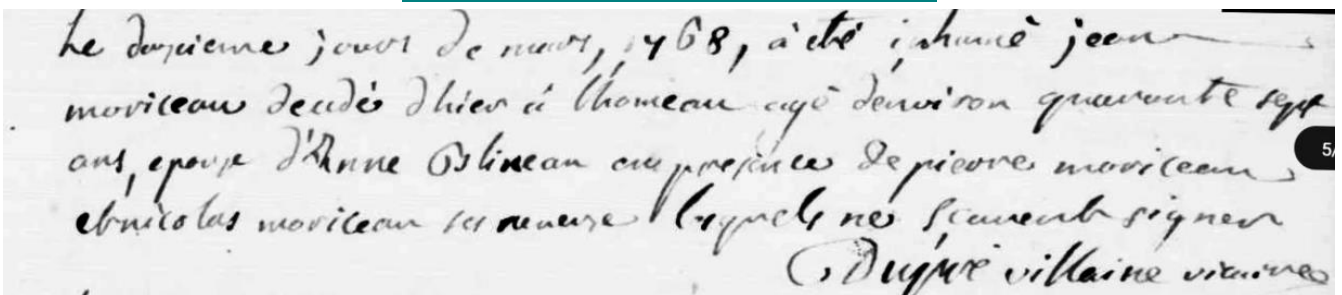 Le douzieme jours de mars, 1768, à été inhumé jean
moriceau decedé d'hier à lhomeau agé denviron quarante sept
ans, epoux d'Anne Oslineau en presence de pierre moriceau
et nicolas moriceau ses neveux lesquels ne sçavent signer
Dupré villaine vicaire
5/